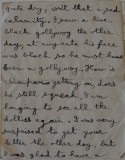 quite dry, wasn't it a sad
calamity. I saw a live
black gollywog the other
day, at any rate his face
was black so he must have
been a gollywog. How is
getting on, does
he still squeak. I am
longing to see all the
dollies again. I was very
surprised to get your
letter the other day, but
I was glad to have